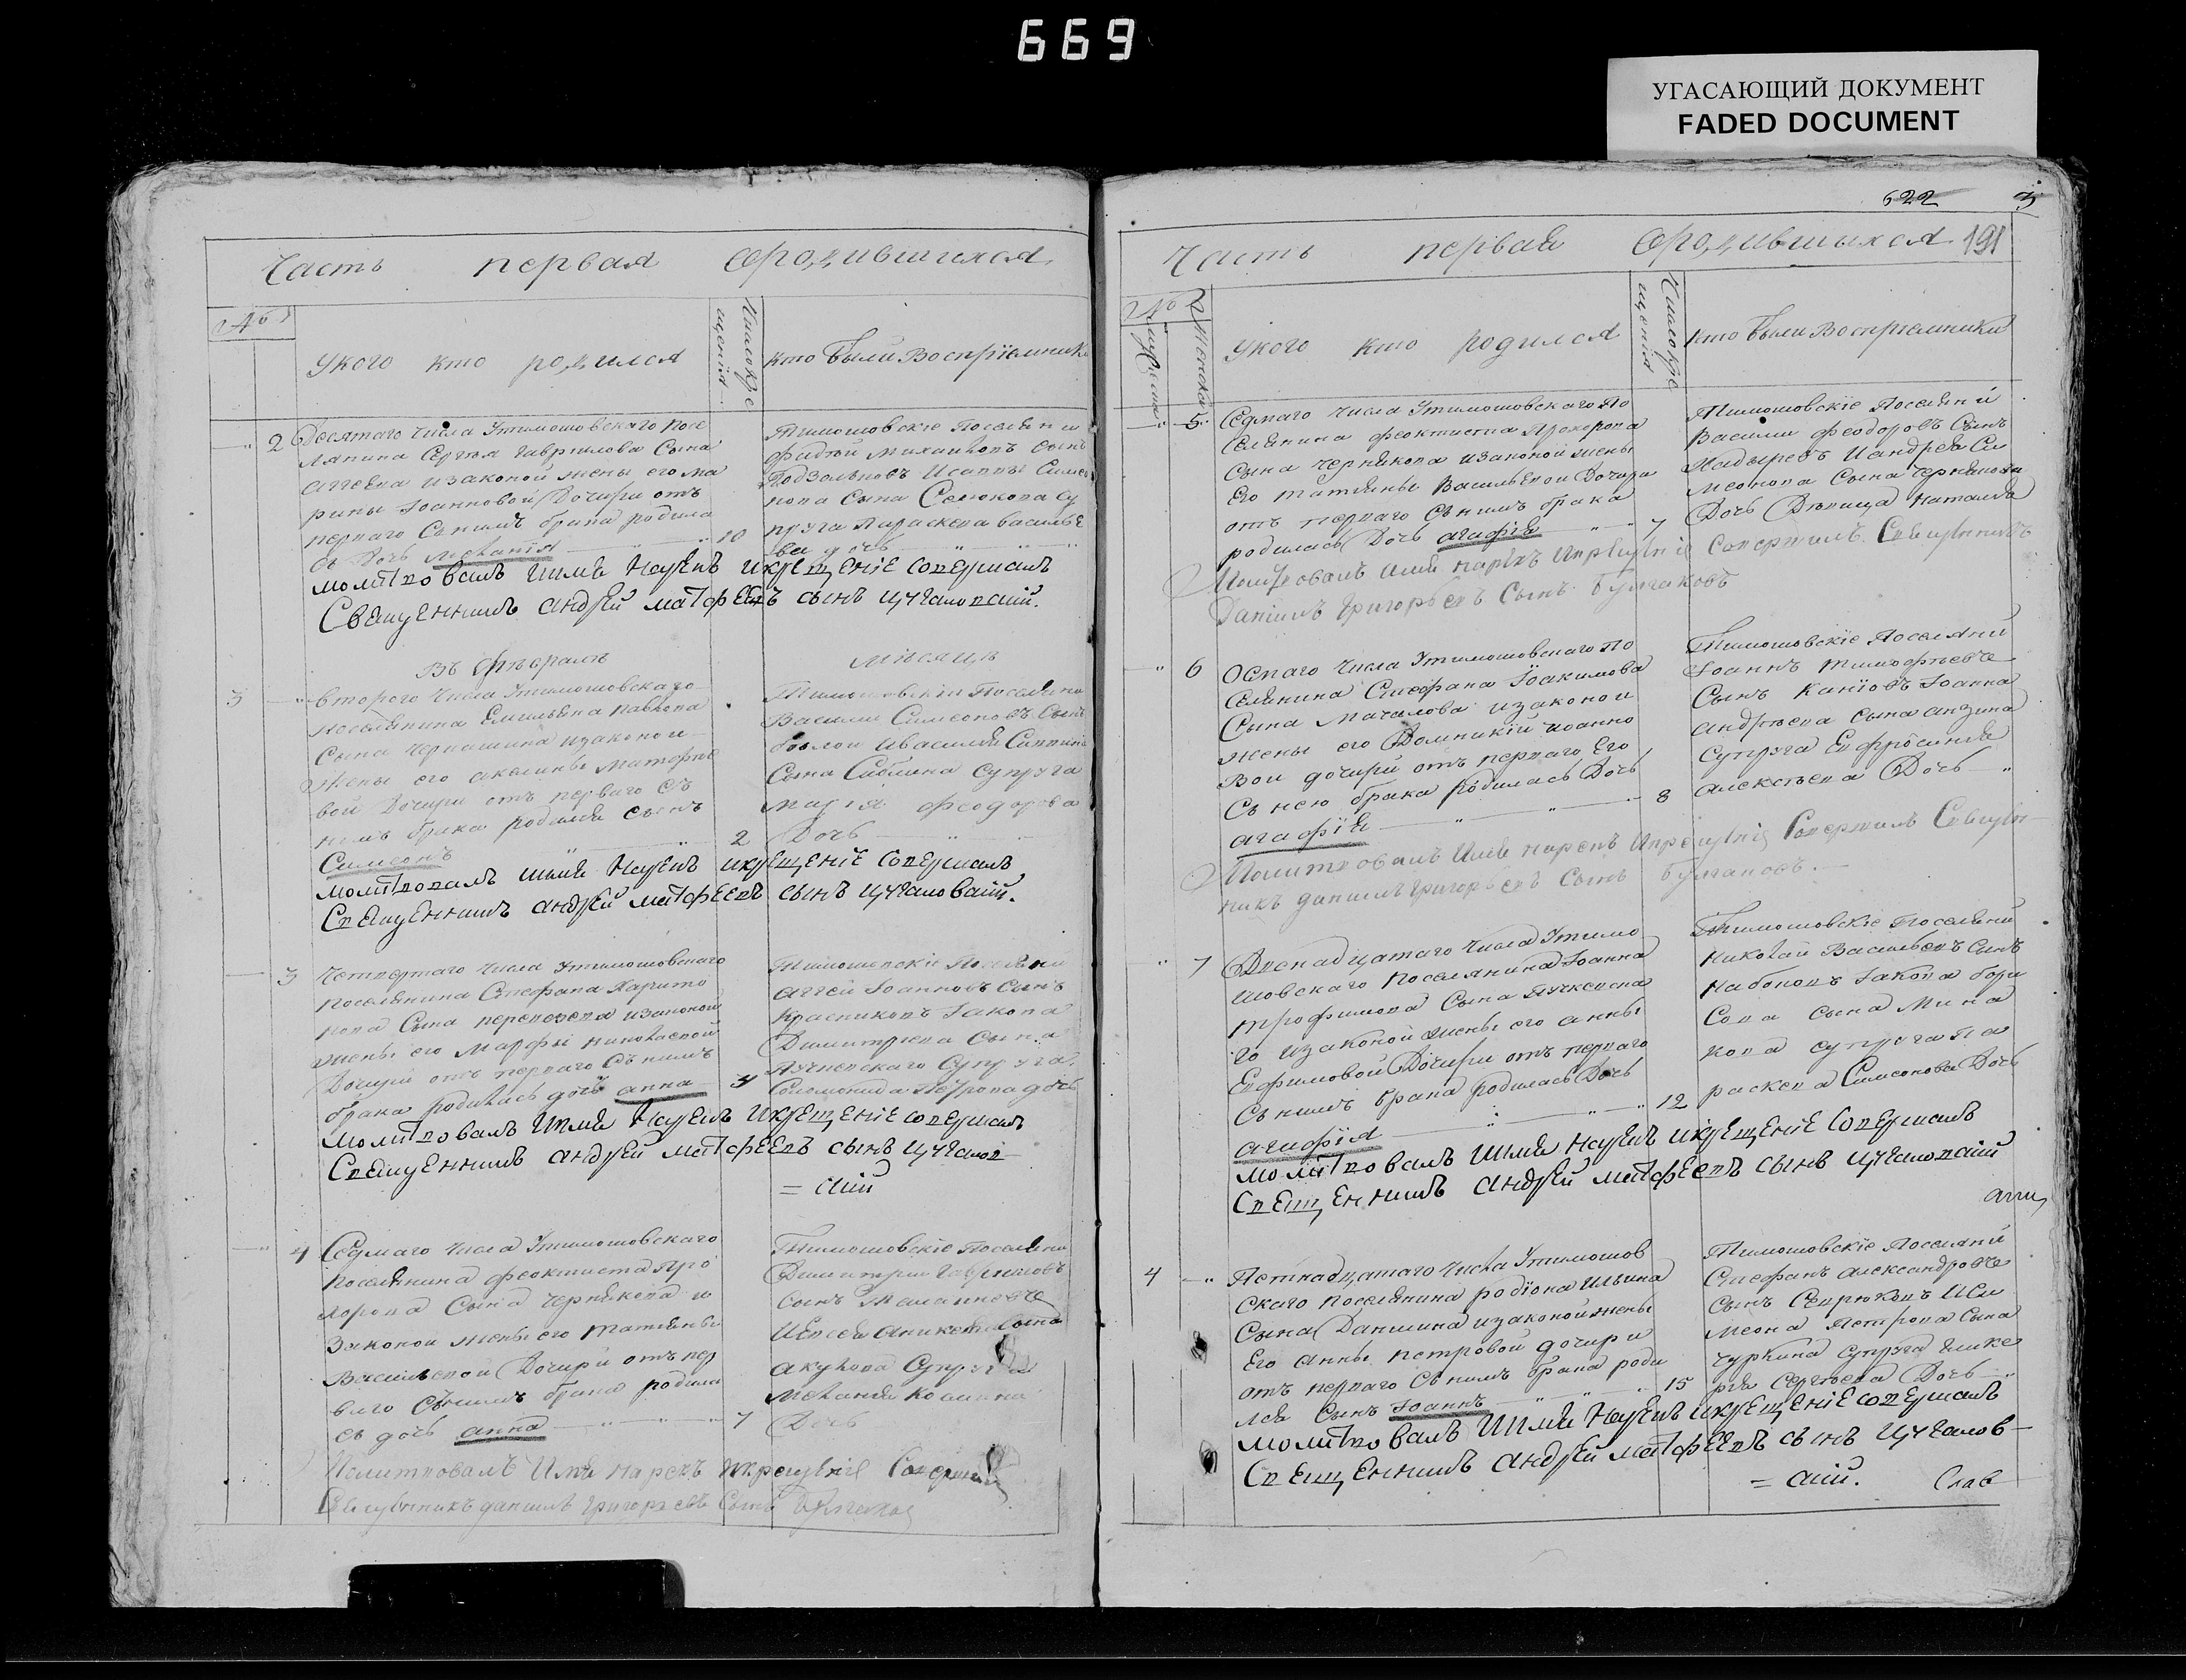 669
УГАСАЮЩИЙ ДОКУМЕНТ
FADED DOCUMENT
Часть первая ородившихся
№
У кого кто родился
Число кре
щенія
кто были Воспріемники
2 Десятаго числа Утимошовскаго посе
лянина Сергея Гаврилова Сына
Аггеева изаконой жены его Ма
рины Іоанновой Дочири отъ
перваго Снимъ брака родила
съ Дочь Меланія 10
Тимошовскіе Поселяни
Фадѣй Михаиловъ Сынъ
Сына
пруга Параскева Василье
ва дочь
молитвовалъ Имя Нарекъ Икрещеніе Совершалъ
Священникъ Андрей Матфеевъ сынъ
Въ Февралѣ Мѣсяцѣ
3 Второго числа Утимошовскаго
поселянина Емильяна Павлова
Сына изаконои
жены его Акилины Матфѣе
вой Дочири отъ перваго съ
нимъ брака родился сынъ
Симеонъ 2
Тимошовскіи Поселяни
Василіи Симеоновъ Сынъ
Сына Саблина Супруга
Марія Феодорова
Дочь
молитвовалъ Имя Нарекъ Икрещеніе Совершалъ
Священникъ Андрей Матфеевъ сынъ
3 Четвертаго числа Утимошовскаго
поселянина Стефана Харито
нова Сына изаконой
жены его Марфы Николаевой
Дочири отъ перваго Снимъ
брака родилась дочь Анна 4
Тимошовскіе Поселяни
Аггей Іоанновъ Сынъ
Красниковъ Іакова
Димитриева Сына
Супруга
Соломонида Петрова дочь
молитвовалъ Имя Нарекъ Икрещеніе Совершалъ
Священникъ Андрей Матфеевъ сынъ
4 Седмаго числа Утимошовскаго
поселянина Феоктиста Про
хорова Сына Чернякова и
Законои жены его Татияны
Васильевой Дочири отъ пер
ваго Снимъ брака родила
съ дочь Анна 7
Тимошовскіе Поселяни
Димитрии Гавриловъ
Сынъ
Сына
Акулова Супруга
Меланія Козмина
Дочь
Молитвовалъ Имя нарекъ Икрещеніе Совершалъ
Священникъ Даниилъ Григорьевъ Сынъ Булгаковъ
622
3
191
Часть первая ородившихся
№
Мужеска
Женска
У кого кто родился
Число кре
щенія
кто были Воспріемники
5 Седмаго числа Утимошовскаго По
селянина Феоктиста Прохорова
Сына Чернякова изаконой жены
Его Татияны Васильевои Дочири
отъ перваго Снимъ брака
родилась Дочь Агафія 7
Тимошовскіе Поселяни
Василіи Феодоровъ Сынъ
Иандрея Си
меонова Сына Чернякова
Дочь Дѣвица Наталія
Молитвовалъ Имя нарекъ Икрещеніе Совершилъ Священникъ
Даніилъ Григорьевъ Сынъ Булгаковъ
6 Осмаго числа Утимошовскаго По
селянина Стефана Іоакимова
Сына Мачалова изаконои
жены его Домникіи Иоанно
вои дочири отъ перваго Его
Снею брака родилась Дочь
Агафія 8
Тимошовскіе Поселяни
Іоаннъ Тимофѣевъ
Сынъ Іоанна
Андрѣева Сына
Супруга Евфросинія
Алексѣева Дочь
Молитвовалъ Имя нарекъ Икрещеніе Совершилъ Священ
никъ Даниилъ Григорьевъ Сынъ Булгаковъ.
7 Двенадцатаго числа Утимо
шовскаго поселянина Іоанна
Трофимова Сына
го изаконой жены его Анны
Евфимовой Дочири отъ перваго
Снимъ брака родилась Дочь
Агафія 12
Тимошовскіе Поселяни
Николай Васильевъ Сынъ
Набоковъ Іакова Бори
Сова Сына Мина
кова супруга Па
раскева Симеонова Дочь
молитвовалъ Имя Нарекъ Икрещеніе Совершалъ
Священникъ Андрей Матфеевъ сынъ
4 Петнадцатаго числа Утимошов
скаго поселянина Родіона Ильина
Сына Даншина изаконой жены
Его Анны Петровой дочири
отъ перваго Снимъ брака роди
лся Сынъ Іоаннъ 15
Тимошовскіе Поселяни
Стефанъ Александровъ
Сынъ Севрюковъ ИСи
меона Петрова Сына
Чуркина супруга Глике
рія Сергѣева Дочь
молитвовалъ Имя Нарекъ Икрещеніе Совершалъ
Священникъ Андрей Матфеевъ сынъ